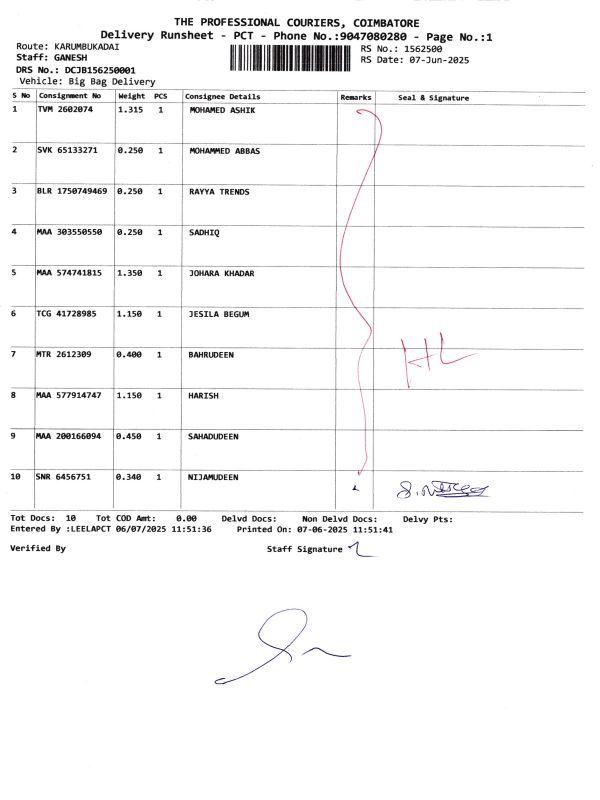 THE PROFESSIONAL COURIERS, COIMBATORE
Delivery Runsheet - PCT - Phone No.:9047080280 - Page No.:1
Route: KARUMBUKADAI RS No.: 1562500
Staff: GANESH RS Date: 07-Jun-2025
DRS No.: DCJB156250001
Vehicle: Big Bag Delivery
S No Consignment No Weight PCS Consignee Details Remarks Seal & Signature
1 TVM 2602074 1.315 1 MOHAMED ASHIK
2 SVK 65133271 0.250 1 MOHAMMED ABBAS
3 BLR 1750749469 0.250 1 RAYYA TRENDS
4 MAA 303550550 0.250 1 SADHIQ
5 MAA 574741815 1.350 1 JOHARA KHADAR
6 TCG 41728985 1.150 1 JESILA BEGUM
7 MTR 2612309 0.400 1 BAHRUDEEN
8 MAA 577914747 1.150 1 HARISH
9 MAA 200166094 0.450 1 SAHADUDEEN
10 SNR 6456751 0.340 1 NIJAMUDEEN
Tot Docs: 10 Tot COD Amt: 0.00 Delvd Docs: Non Delvd Docs: Delvy Pts:
Entered By :LEELAPCT 06/07/2025 11:51:36 Printed On: 07-06-2025 11:51:41
Verified By Staff Signature